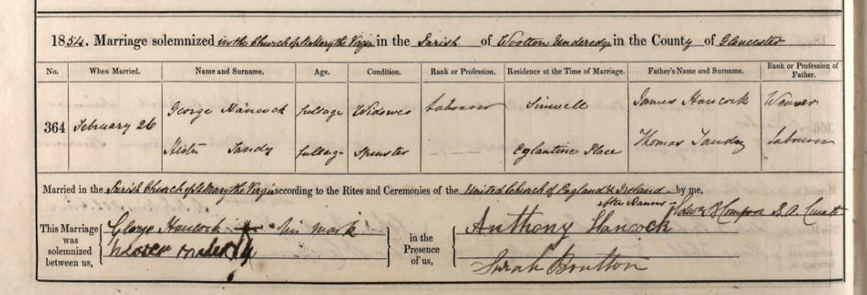 1854. Marriage solemnized in the Church of St Mary the Virgin in the Parish of Wootton Underedge in the County of Gloucester
No. When Married. Name and Surname. Age. Condition. Rank or Profession. Residence at the Time of Marriage. Father's Name and Surname. Rank or Profession of Father.
George Hancock full age Widower Labourer Sinwell James Hancock Weaver
364 February 26
Hester Tandy full age Spinster Eglantine Place Thomas Tandy Labourer
Married in the Parish Church of St Mary the Virgin according to the Rites and Ceremonies of the United Church of England & Ireland by me,
after Banns B.A. Curate
This Marriage was solemnized between us, George Hancock his mark in the Presence of us, Anthony Hancock
Sarah